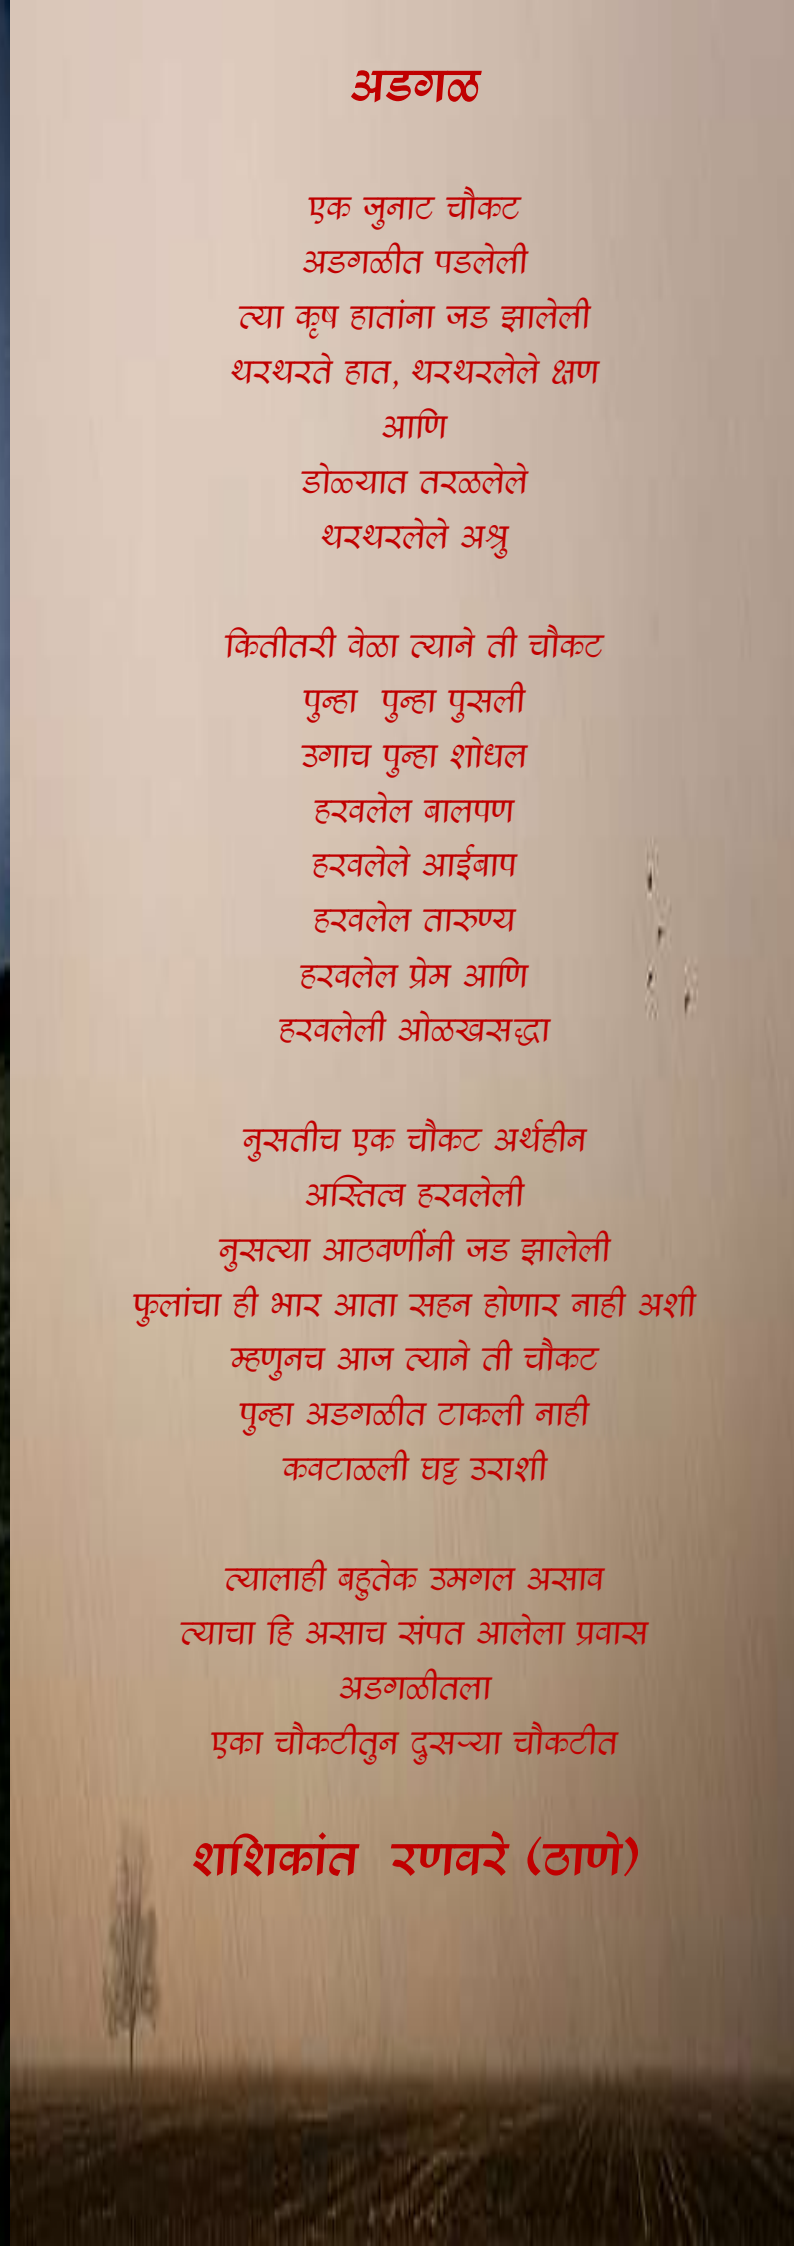 अडगळ
एक जुनाट चौकट
अडगळीत पडलेली
त्या कृष हातांना जड झालेली
थरथरते हात, थरथरलेले क्षण
आणि
डोळ्यात तरळलेले
थरथरलेले अश्रु
कितीतरी वेळा त्याने ती चौकट
पुन्हा पुन्हा पुसली
उगाच पुन्हा शोधल
हरवलेल बालपण
हरवलेले आईबाप
हरवलेल तारुण्य
हरवलेल प्रेम आणि
हरवलेली ओळखसद्धा
नुसतीच एक चौकट अर्थहीन
अस्तित्व हरवलेली
नुसत्या आठवणींनी जड झालेली
फुलांचा ही भार आता सहन होणार नाही अशी
म्हणुनच आज त्याने ती चौकट
पुन्हा अडगळीत टाकली नाही
कवटाळली घट्ट उराशी
त्यालाही बहुतेक उमगल असाव
त्याचा हि असाच संपत आलेला प्रवास
अडगळीतला
एका चौकटीतुन दुसऱ्या चौकटीत
शशिकांत रणवरे (ठाणे)